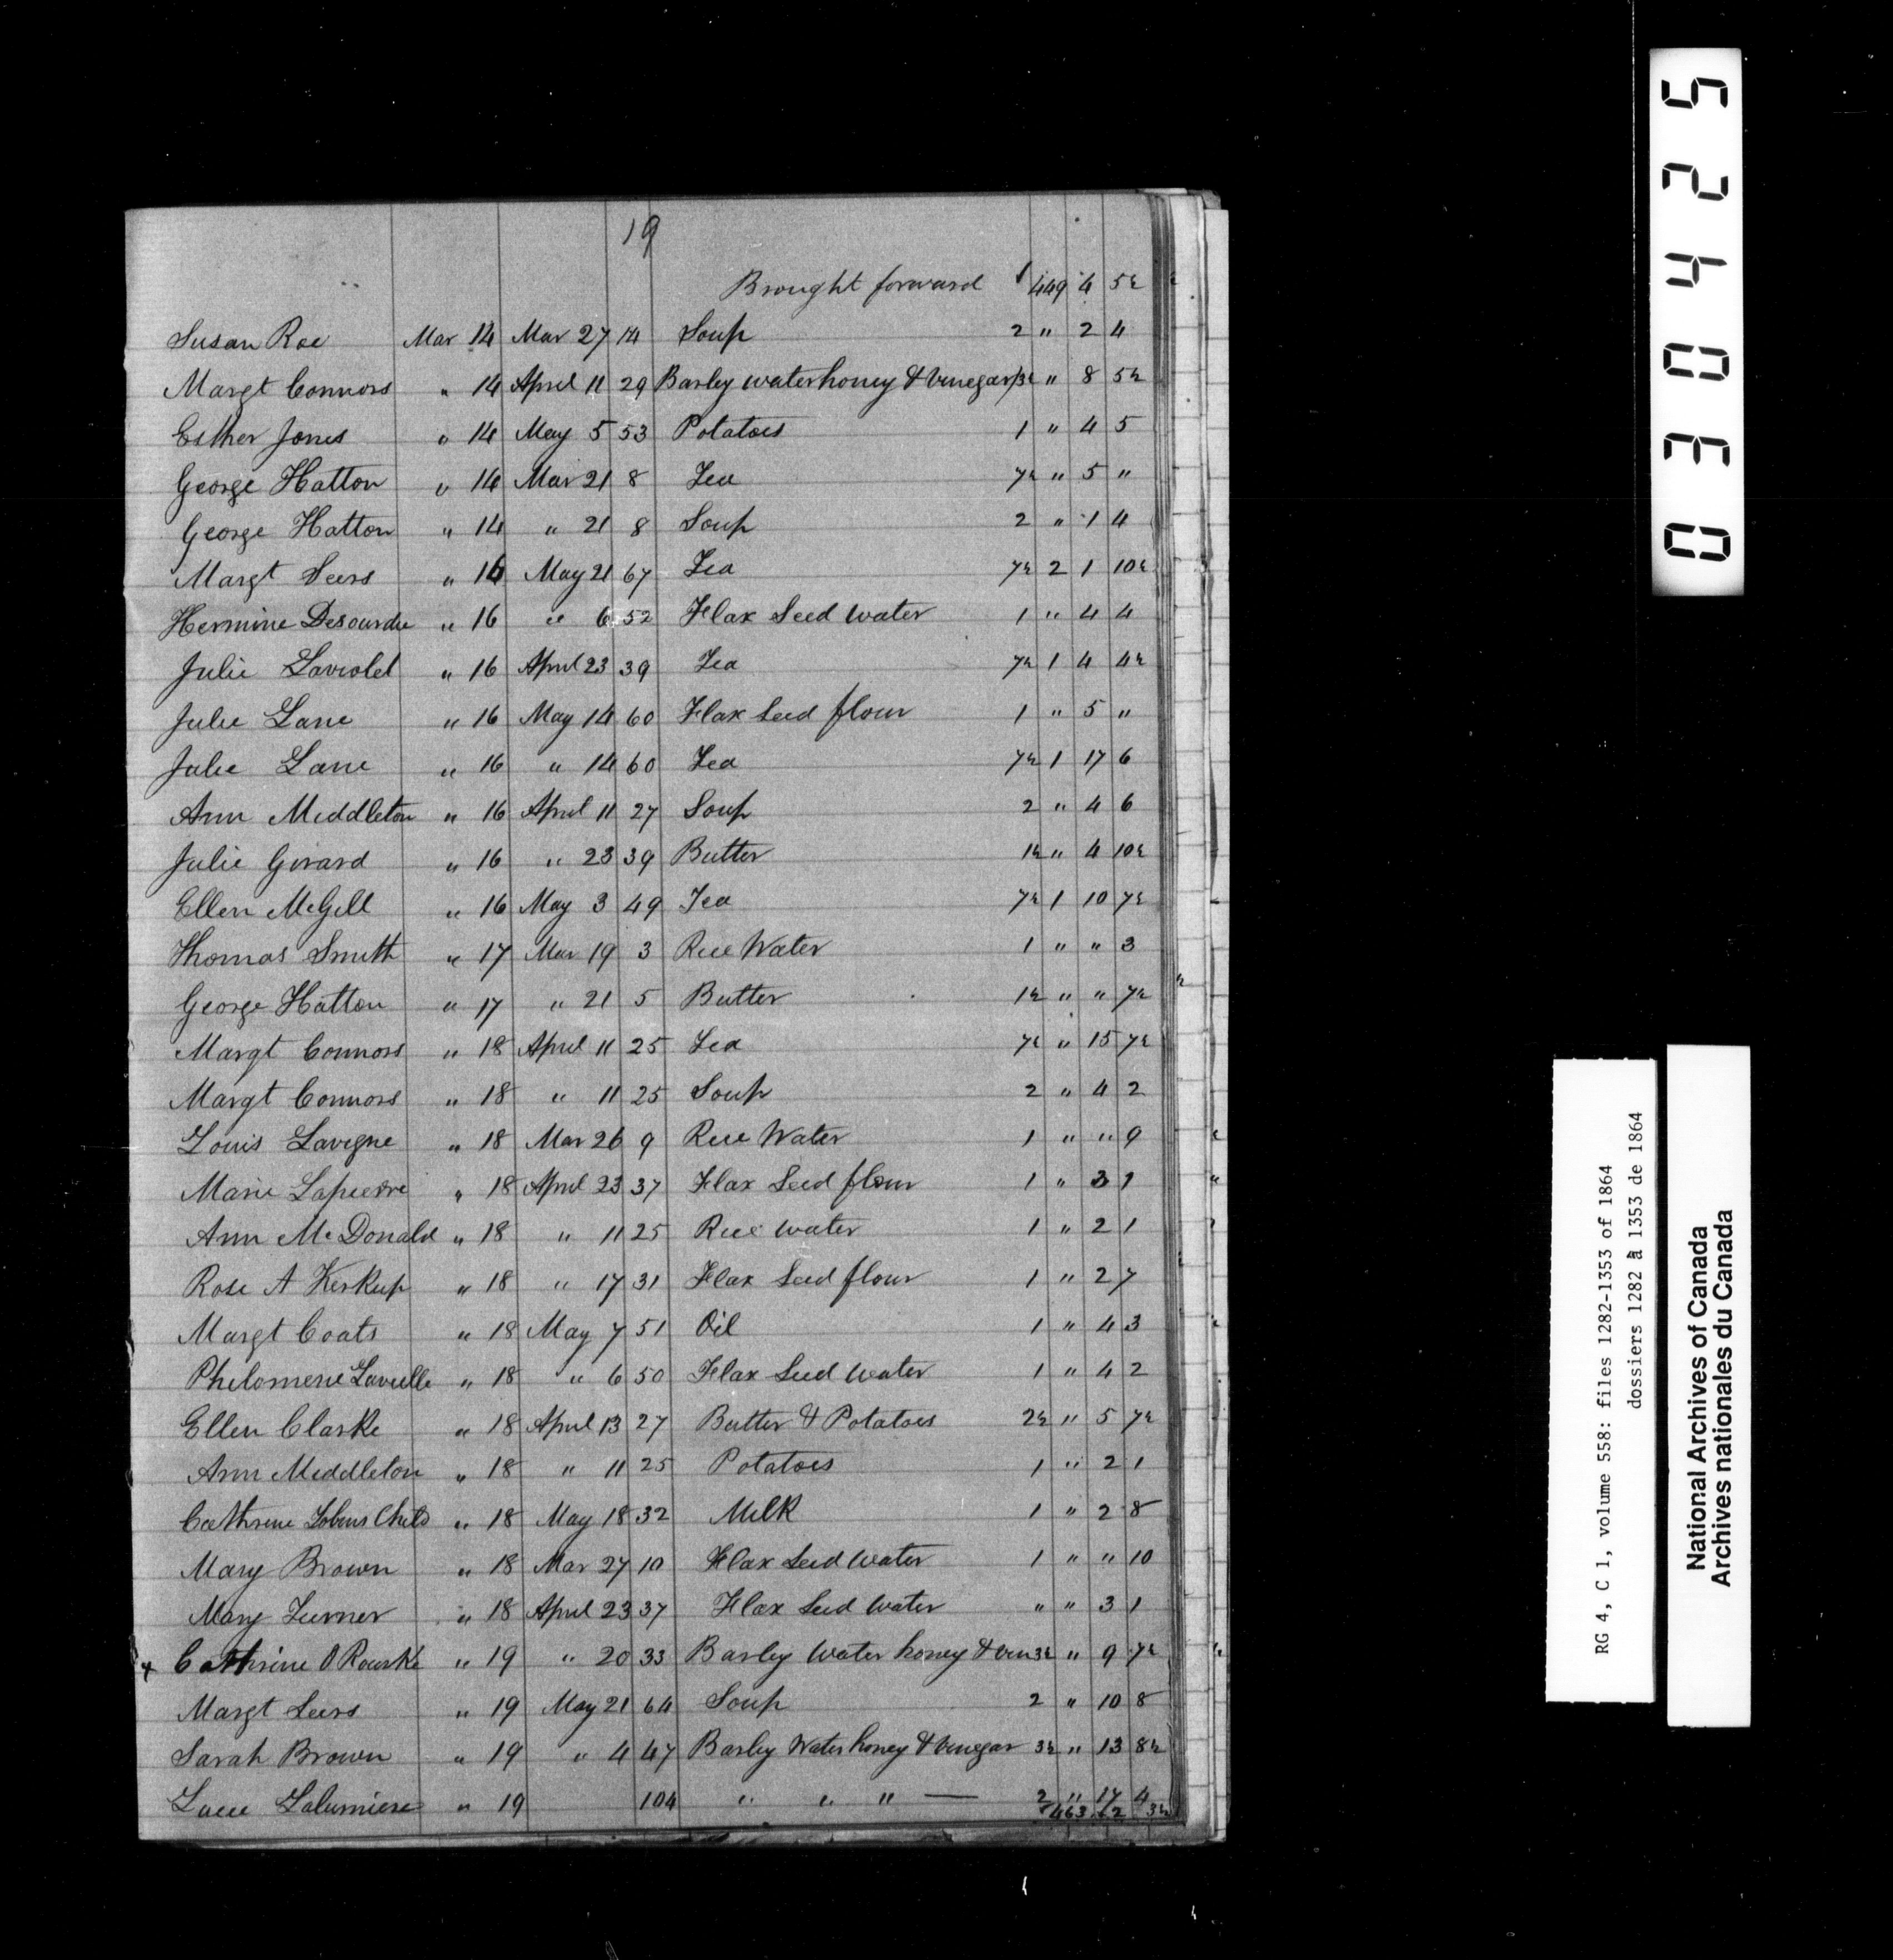 19
Brought forward 449 4 5½
Susan Roe Mar 14 Mar 27 14 Soup 2 " 2 4
Margt Connors " 14 April 11 29 Barley water honey & Vinegar 3½ " 8 5½
Esther Jones " 14 May 5 53 Potatoes 1 " 4 5
George Hatton " 14 Mar 21 8 Tea 7½ " 5 "
George Hatton " 14 " 21 8 Soup 2 " 1 4
Margt Seers " 16 May 21 67 Tea 7½ 2 1 10½
Hermine Desourdie " 16 " 6 52 Flax Seed Water 1 " 4 4
Julie Laviolet " 16 April 23 39 Tea 7½ 1 4 4½
Julie Lane " 16 May 14 60 Flax Seed flour 1 " 5 "
Julie Lane " 16 " 14 60 Tea 7½ 1 17 6
Ann Middleton " 16 April 11 27 Soup 2 " 4 6
Julie Girard " 16 " 23 39 Butter 1½ " 4 10½
Ellen McGill " 16 May 3 49 Tea 7½ 1 10 7½
Thomas Smith " 17 Mar 19 3 Rice Water 1 " " 3
George Hatton " 17 " 21 5 Butter 1½ " " 7½
Margt Connors " 18 April 11 25 Tea 7½ " 15 7½
Margt Connors " 18 " 11 25 Soup 2 " 4 2
Louis Lavigne " 18 Mar 26 9 Rice Water 1 " " 9
Marie Lapierre " 18 April 23 37 Flax Seed flour 1 " 3 1
Ann McDonald " 18 " 11 25 Rice Water 1 " 2 1
Rose A Kerkup " 18 " 17 31 Flax Seed flour 1 " 2 7
Margt Coats " 18 May 7 51 Oil 1 " 4 3
Philomene " 18 " 6 50 Flax Seed Water 1 " 4 2
Ellen Clarke " 18 April 13 27 Butter & Potatoes 2½ " 5 7½
Ann Middleton " 18 " 11 25 Potatoes 1 " 2 1
Cathrine Child " 18 May 18 32 Milk 1 " 2 8
Mary Brown " 18 Mar 27 10 Flax Seed Water 1 " " 10
Mary Turner " 18 April 23 37 Flax Seed Water " " 3 1
x Cathrine O Rourke " 19 " 20 33 Barley Water honey & Vin 3½ " 9 7½
Margt Seers " 19 May 21 64 Soup 2 " 10 8
Sarah Brown " 19 " 4 47 Barley Water honey & Vinegar 3½ " 13 8½
Lucie Lalumiere " 19 104 " " " — 2 " 17 4
463 12 3½
030425
RG 4, C 1, volume 558: files 1282-1353 of 1864
dossiers 1282 à 1353 de 1864
National Archives of Canada
Archives nationales du Canada